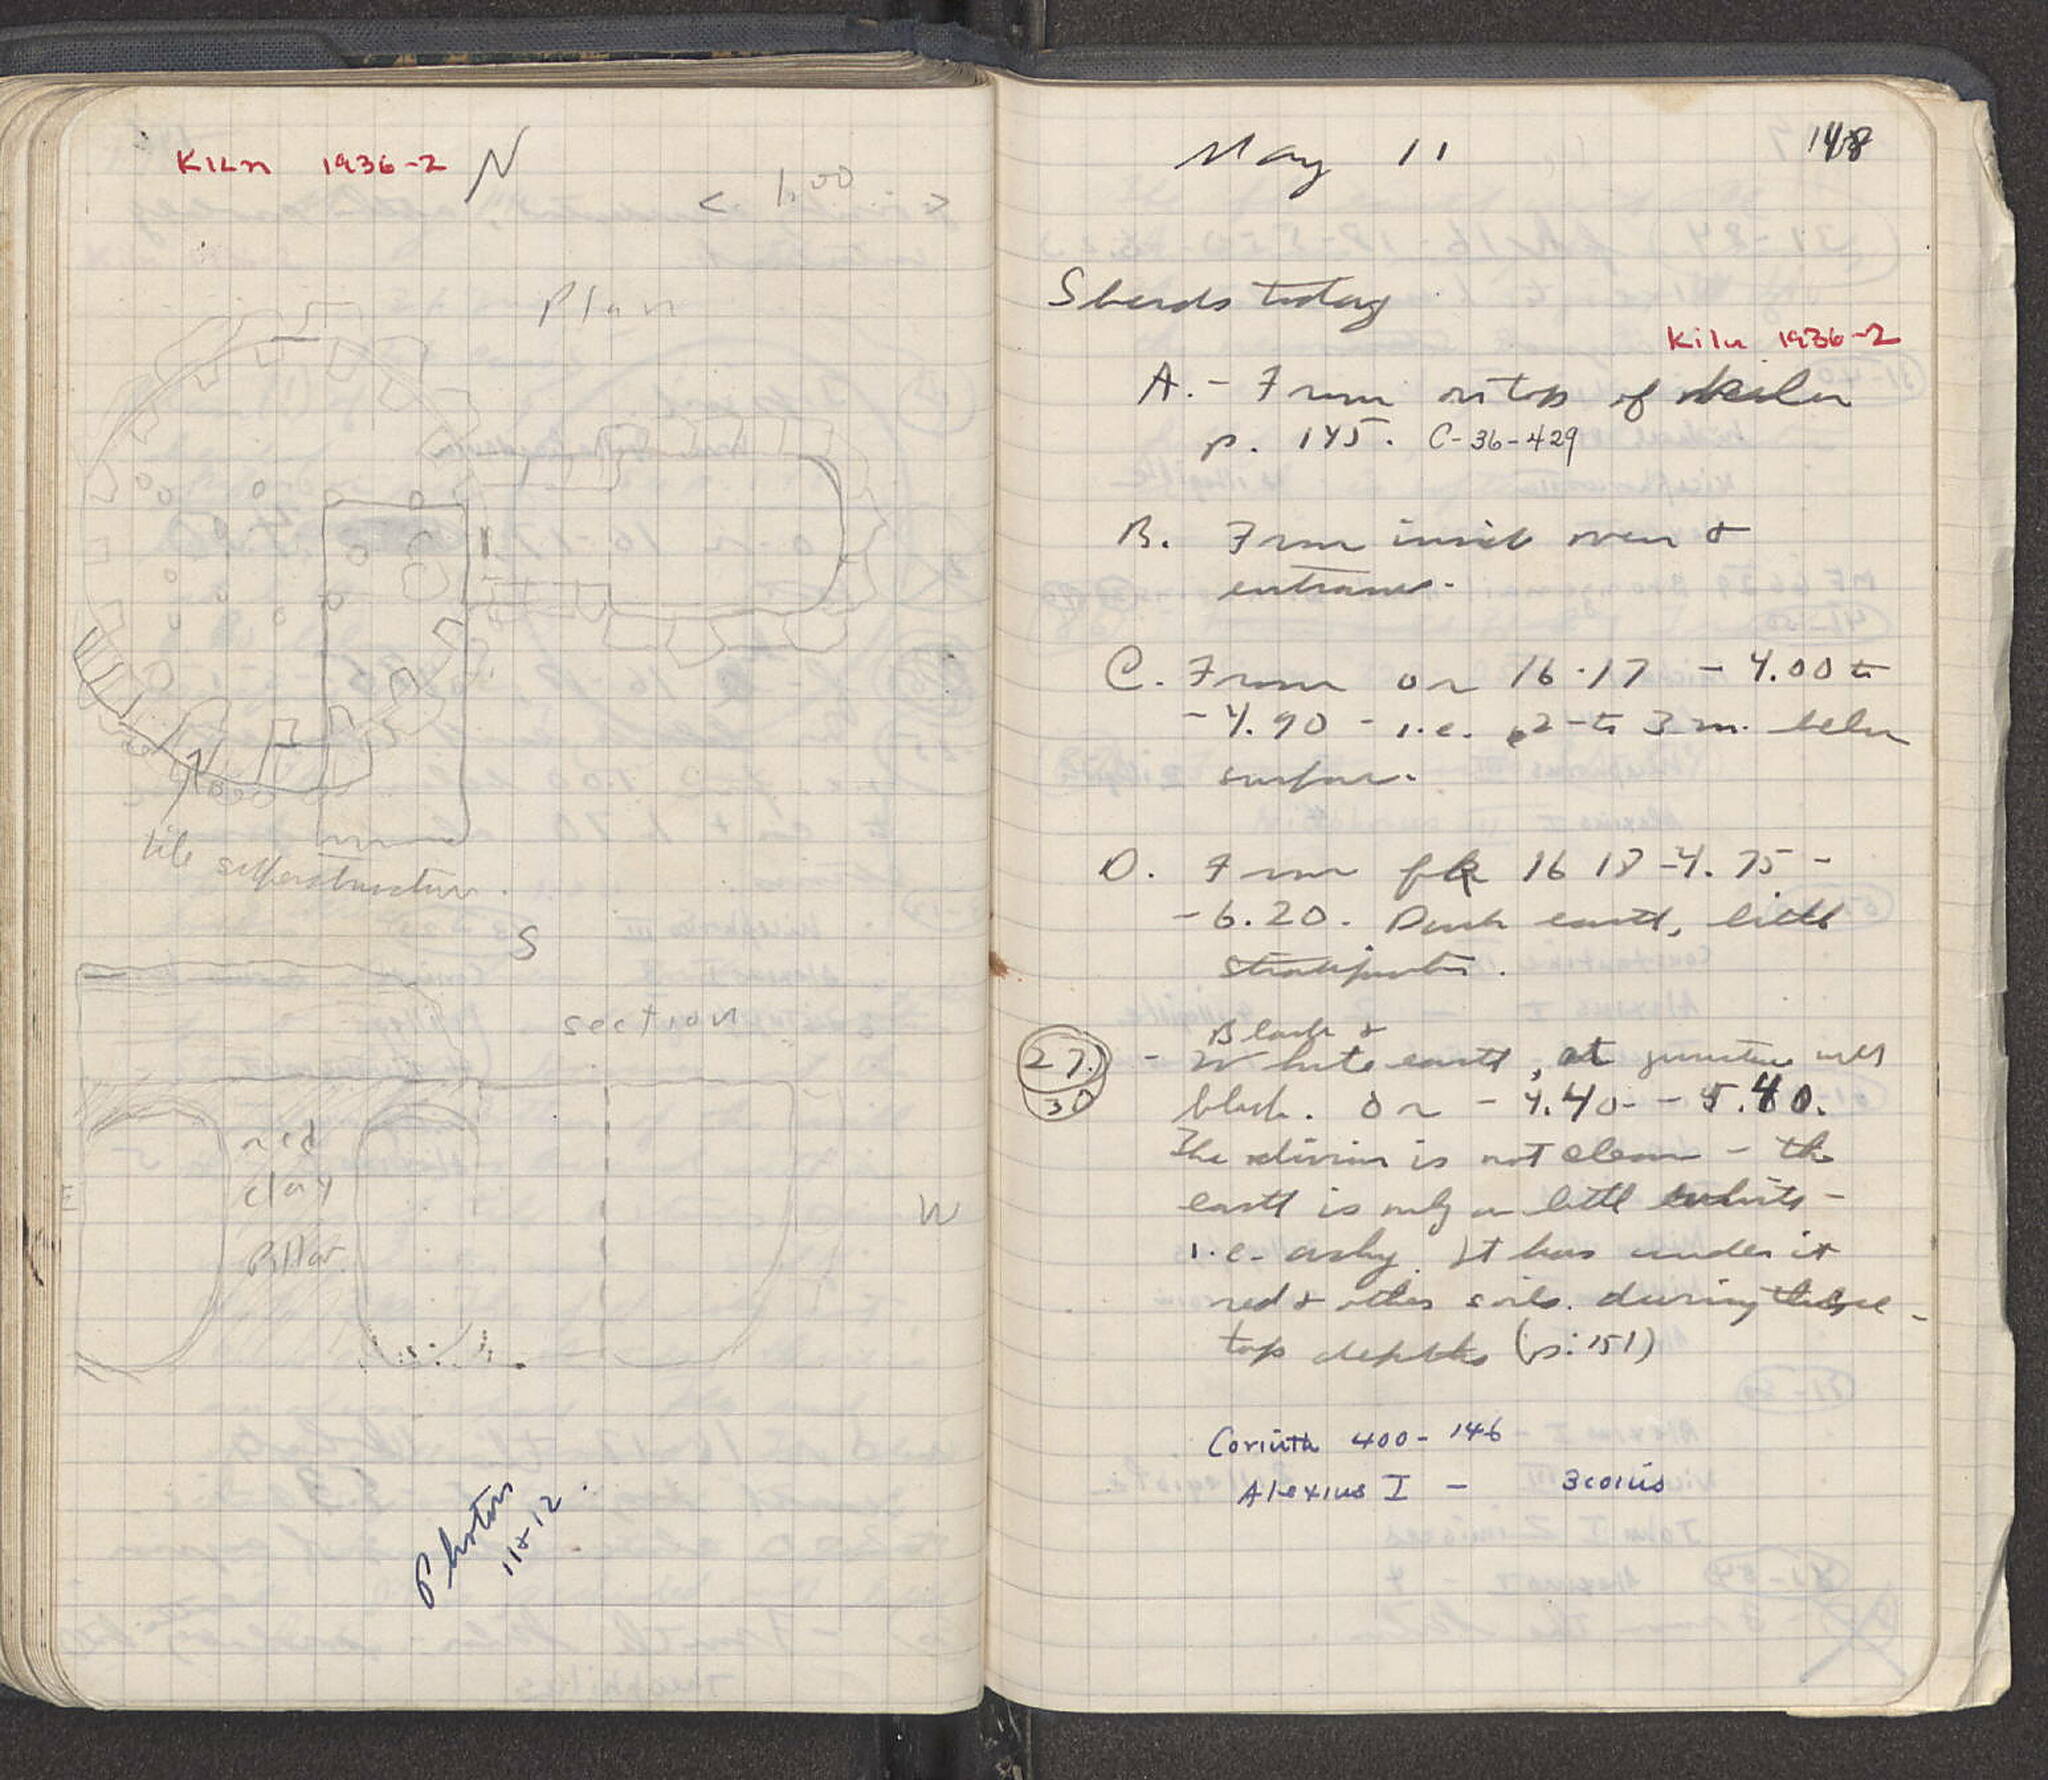 Kiln 1936-2 N
< 1.00 >
Plan
tile superstructure.
S
section
red
clay
pillar.
E
W
Photos
11+12.
May 11 148
Sherds today
Kiln 1936-2
A. - From on top of kiln
p. 145. C-36-429
B. From inside oven &
entrance.
C. From on 16-17 - 4.00 to
-4.90 - i.e. 2 to 3 m. below
surface.
D. From fk 16 18 -4.75 -
-6.20. Dark earth, little
Black &
27.) - White earth, at juncture with
30 black. on - 4.40 - - 5.40.
The division is not clear - the
earth is only a little white -
i.e. ashy. It has under it
red & other soils. during these
top depths (p. 151)
Corinth 400-146
Alexius I - 3 coins